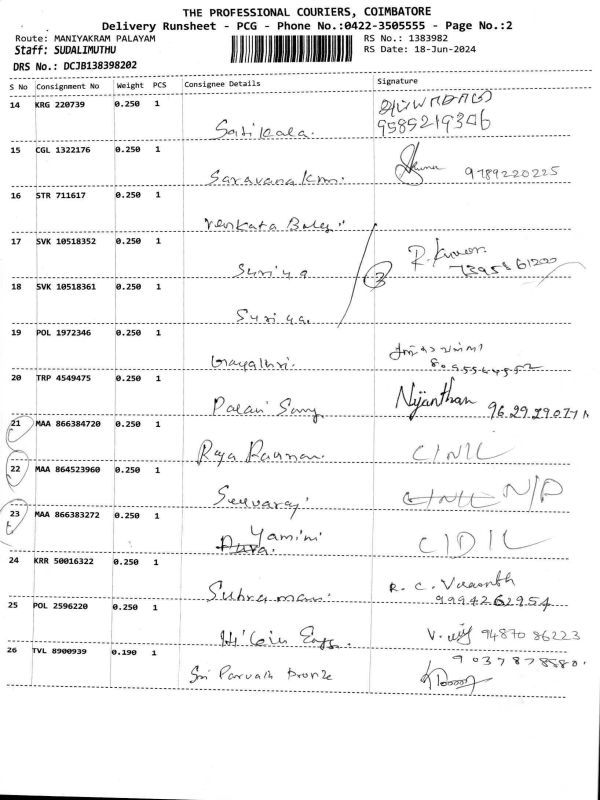 THE PROFESSIONAL COURIERS, COIMBATORE
Delivery Runsheet - PCG - Phone No.:0422-3505555 - Page No.:2
Route: MANIYAKRAM PALAYAM RS No.: 1383982
Staff: SUDALIMUTHU RS Date: 18-Jun-2024
DRS No.: DCJB138398202
S No Consignment No Weight PCS Consignee Details Signature
14 KRG 220739 0.250 1
Sasikala. 9585219306
15 CGL 1322176 0.250 1
Saravanakm. 9789220225
16 STR 711617 0.250 1
Venkata
17 SVK 10518352 0.250 1 R. Kumar
Suriya 3
18 SVK 10518361 0.250 1
Suriya.
19 POL 1972346 0.250 1
Gayathri.
20 TRP 4549475 0.250 1 Nijanthan
Palani
21 MAA 866384720 0.250 1
Raja Raman. C/N/L
22 MAA 864523960 0.250 1
Selvaraj. N/P
23 MAA 866383272 0.250 1
Yamini C/D/L
24 KRR 50016322 0.250 1
R. C. Vasanth
9994262954
25 POL 2596220 0.250 1
V. 94870 86223
26 TVL 8900939 0.190 1 9037878580.
Sri Parvathi Bronze